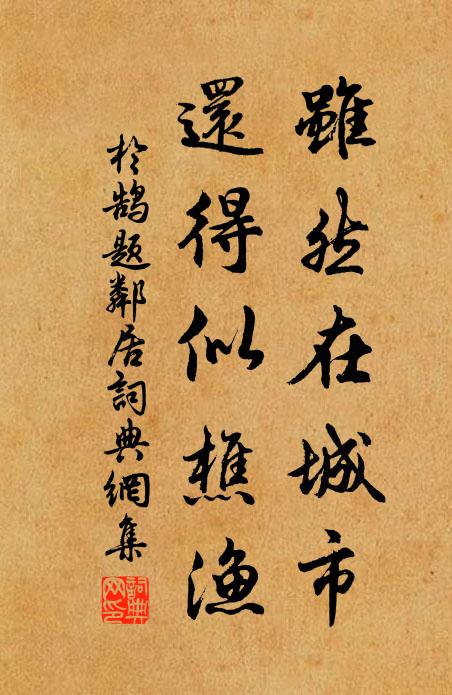 雖然在城市
還得似樵漁
於鵠題鄰居詞典網集
詞典網印